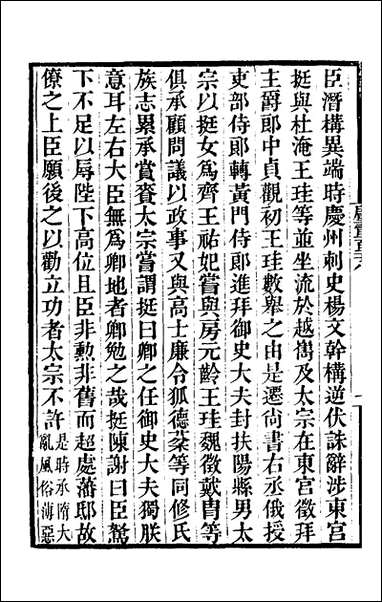 臣潛構異端時慶州刺史楊文幹構逆伏誅辭涉東宮
挺與杜淹王珪等並坐流於越巂及太宗在東宮徵拜
主爵郎中貞觀初王珪數舉之由是遷尚書右丞俄授
吏部侍郎轉黃門侍郎進拜御史大夫封扶陽縣男太
宗以挺女爲齊王祐妃嘗與房元齡王珪魏徵戴冑等
俱承顧問議以政事又與高士廉令狐德棻等同修氏
族志累承賞賚太宗嘗謂挺曰卿之任御史大夫獨朕
意耳左右大臣無爲卿地者卿勉之哉挺陳謝曰臣駑
下不足以辱陛下高位且臣非勳非舊而超處藩邸故
僚之上臣願後之以勸立功者太宗不許是時承隋大
亂風俗薄惡